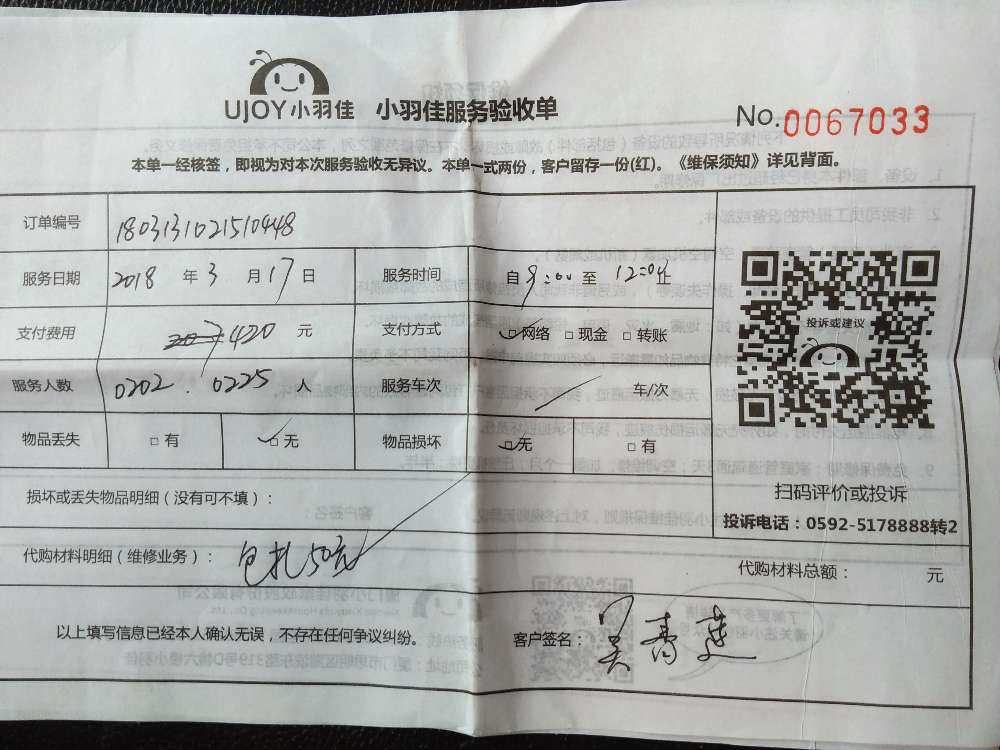 UJOY小羽佳 小羽佳服务验收单
No.0067033
本单一经核签，即视为对本次服务验收无异议。本单一式两份，客户留存一份(红)。《维保须知》详见背面。
订单编号 1803131021510448
服务日期 2018 年 3 月 17 日 服务时间 自 9:00 至 12:00 止
支付费用 420 元 支付方式 □网络 □现金 □转账
投诉或建议
服务人数 0202 . 0225 人 服务车次 车/次
物品丢失 □有 □无 物品损坏 □无 □有
损坏或丢失物品明细（没有可不填）：
扫码评价或投诉
投诉电话：0592-5178888转2
代购材料明细（维修业务）： 包扎50元
代购材料总额： 元
以上填写信息已经本人确认无误，不存在任何争议纠纷。 客户签名：